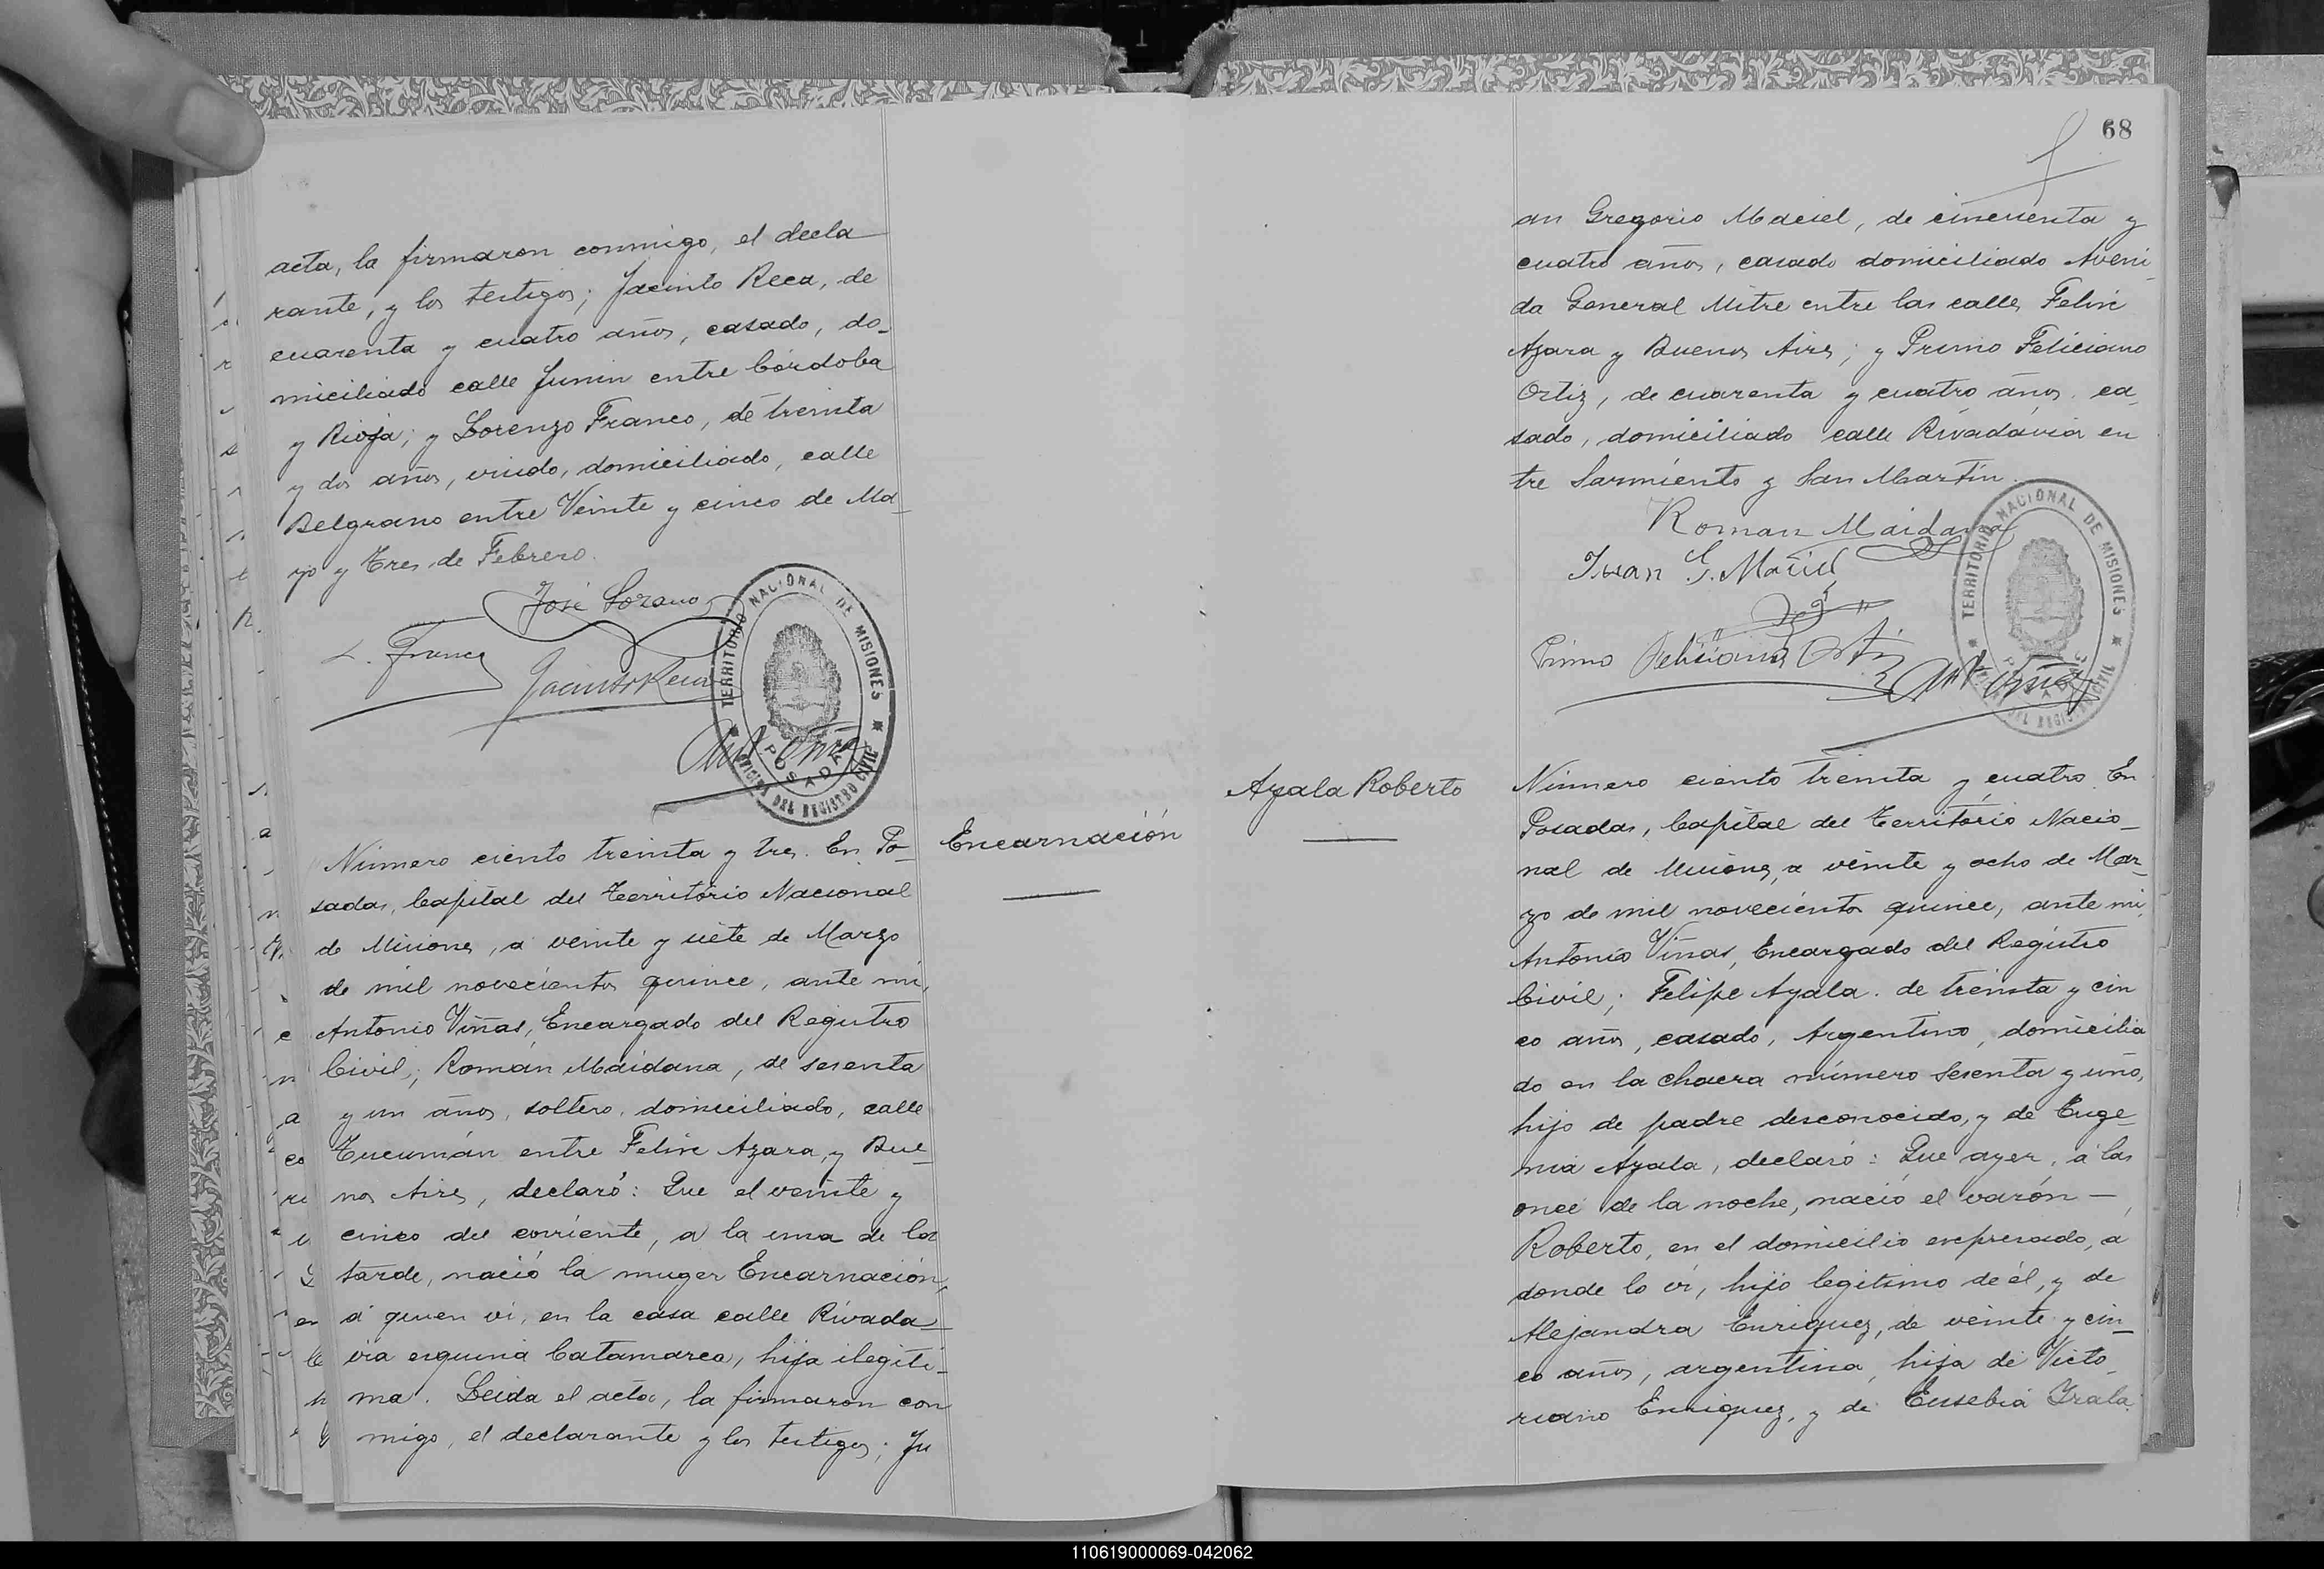 acta, la firmaron conmigo, el decla
rante, y los testigos; Jacinto Reca, de
cuarenta y cuatro años, casado, do-
miciliado calle Junin entre Córdoba
y Rioja; y Lorenzo Franco, de treinta
y dos años, viudo, domiciliado, calle
Belgrano entre Veinte y cinco de Ma-
yo y Tres de Febrero.
José Lozano
L. Franco
Jacinto Reca
TERRITORIO NACIONAL DE MISIONES
OFICINA DEL REGISTRO CIVIL
POSADAS
Número ciento treinta y tres. En Po-
sadas, Capital del Territorio Nacional
de Misiones, a veinte y siete de Marzo
de mil novecientos quince, ante mi,
Antonio Viñas, Encargado del Registro
Civil; Román Maidana, de sesenta
y un años, soltero, domiciliado, calle
Tucumán entre Felix Azara, y Bue-
nos Aires, declaró: Que el veinte y
cinco del corriente, a la una de la
tarde, nació la muger Encarnación,
á quien vi, en la casa calle Rivada-
via esquina Catamarca, hija ilegiti-
ma. Leida el acta, la firmaron con
migo, el declarante y los testigos; Ju
Encarnación
68
an Gregorio Maciel, de cincuenta y
cuatro años, casado domiciliado Aveni-
da General Mitre entre las calles Felix
Azara y Buenos Aires; y Primo Feliciano
Ortiz, de cuarenta y cuatro años. ca-
sado, domiciliado calle Rivadavia en
tre Sarmiento y San Martín.
Roman Maidana
Juan G. Maciel
Primo Feliciano Ortiz
TERRITORIO NACIONAL DE MISIONES
OFICINA DEL REGISTRO CIVIL
POSADAS
Ayala Roberto
Número ciento treinta y cuatro. En
Posadas, Capital del Territorio Nacio-
nal de Misiones, a veinte y ocho de Mar-
zo de mil novecientos quince, ante mi,
Antonio Viñas, Encargado del Registro
Civil; Felipe Ayala. de treinta y cin
co años, casado, Argentino, domicilia
do en la chacra número sesenta y uno,
hijo de padre desconocido, y de Euge-
nia Ayala, declaró: Que ayer, a las
once de la noche, nació el varón —
Roberto, en el domicilio expresado, a
donde lo vi, hijo legitimo de él, y de
Alejandra Enriquez, de veinte y cin-
co años, argentina, hija de Victo-
riano Enriquez, y de Eusebia Irala.
110619000069-042062